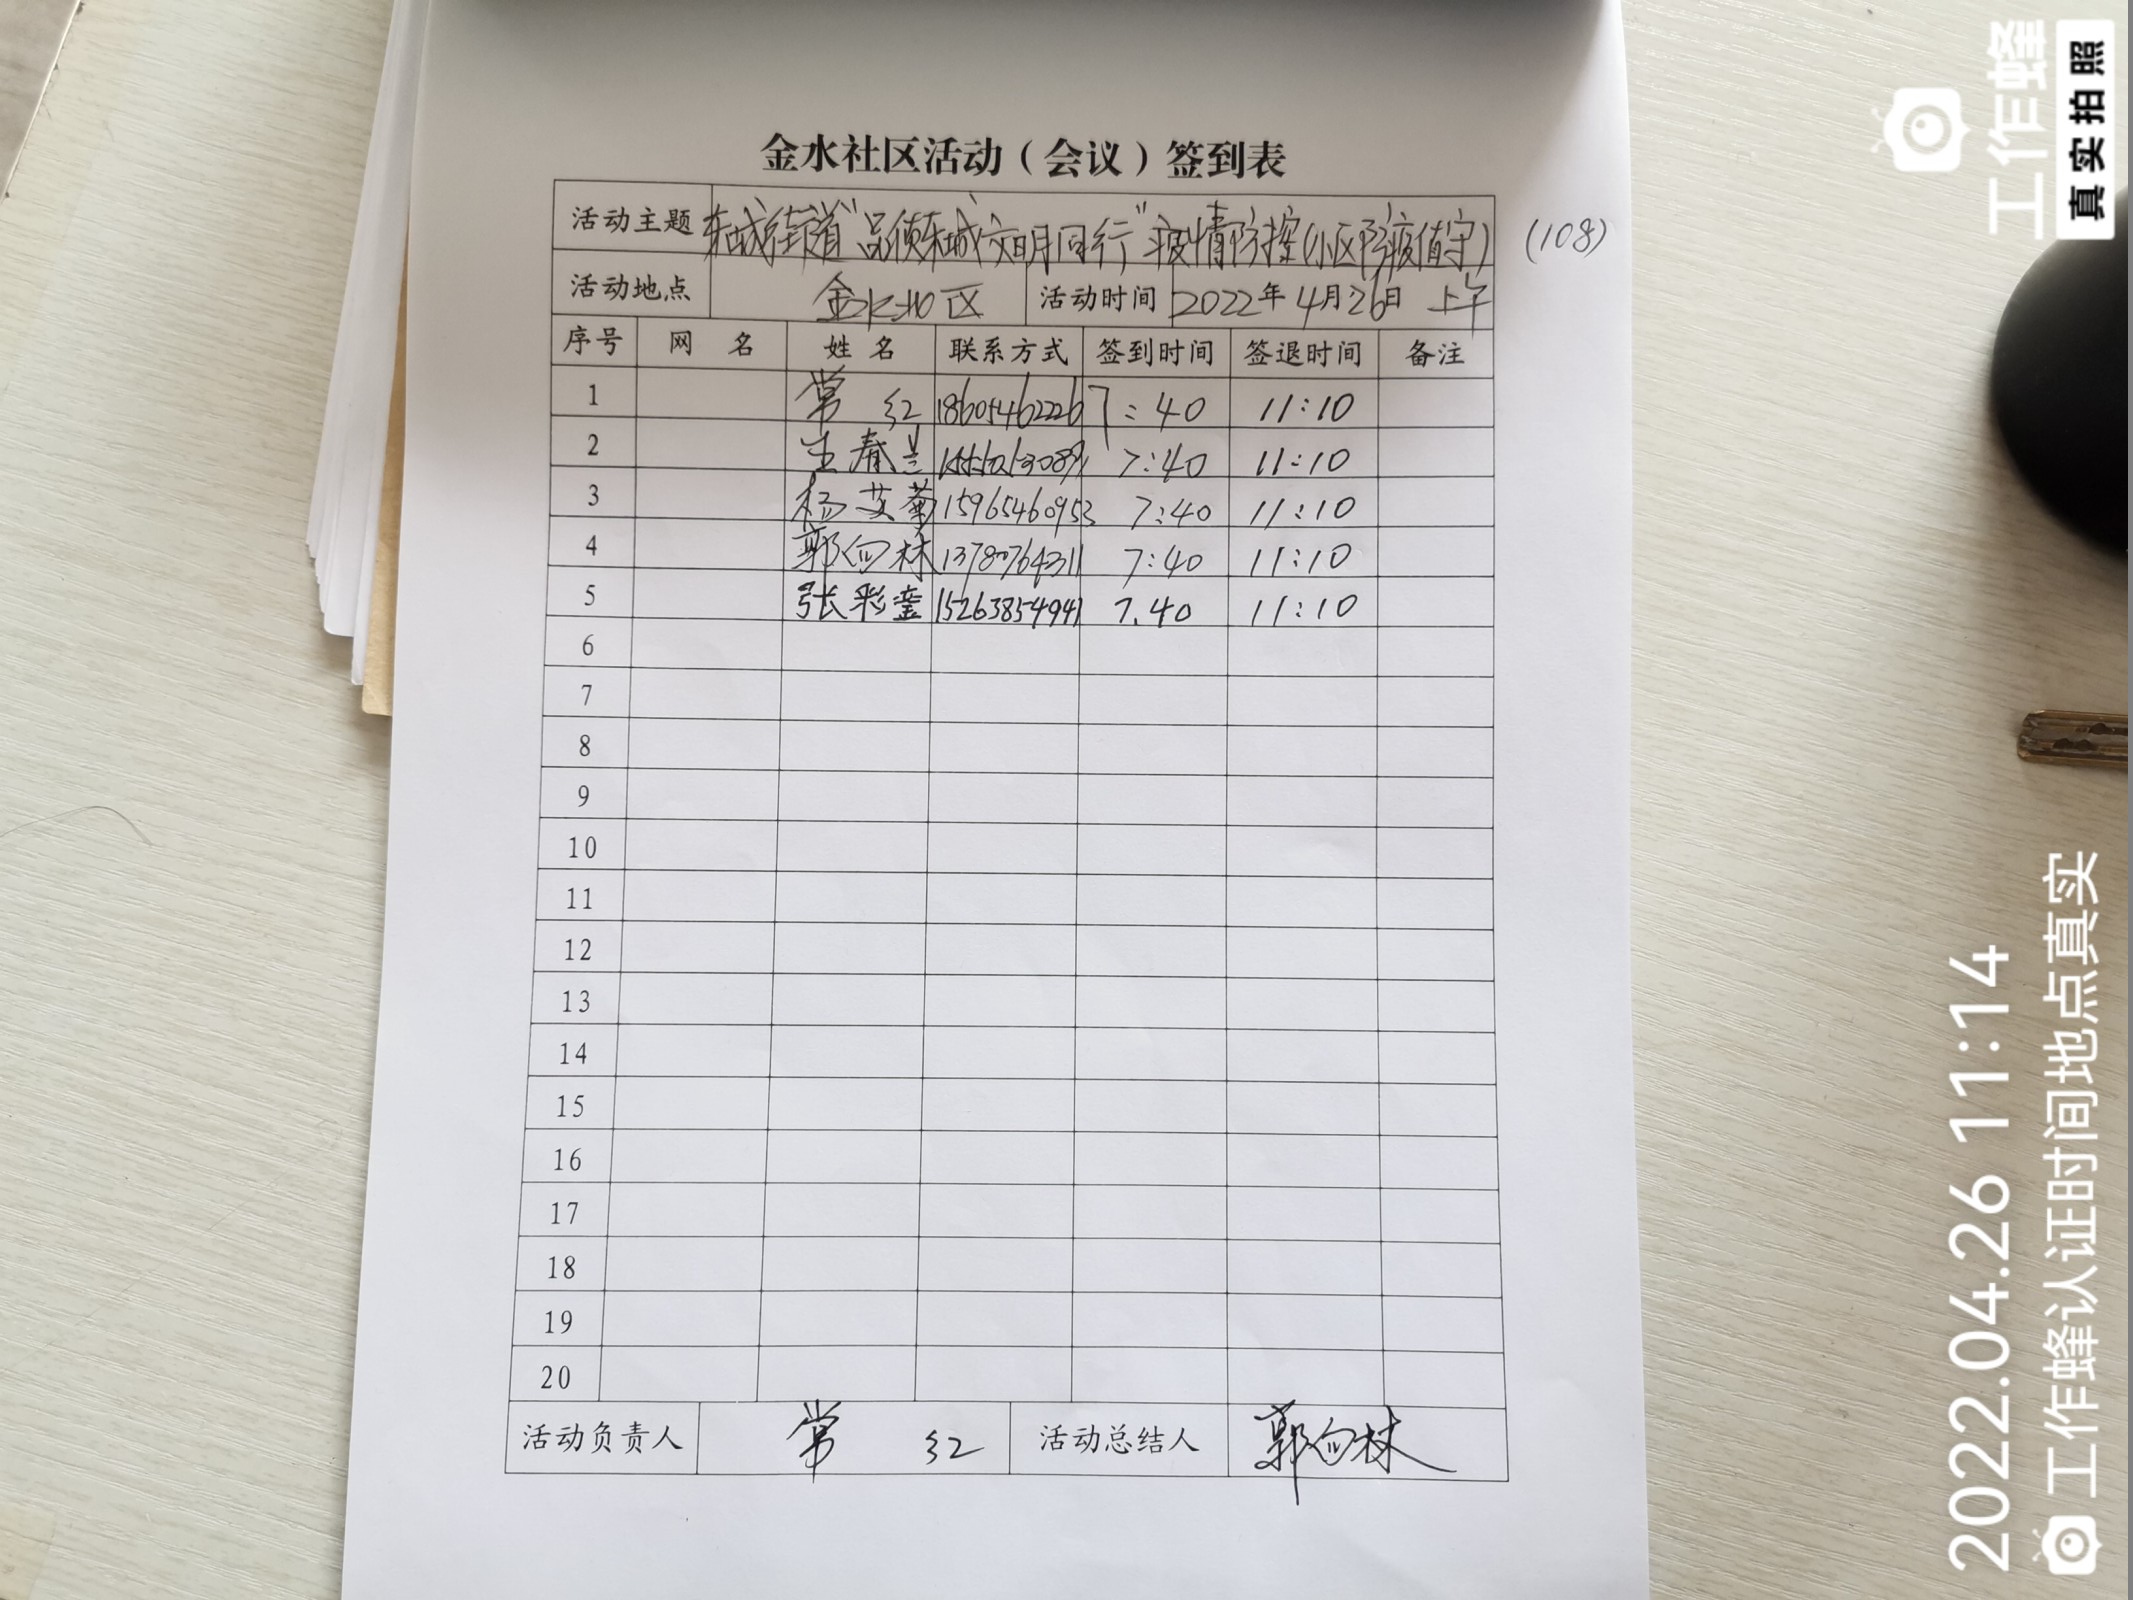 金水社区活动（会议）签到表
活动主题 东城街道"品质东城 文明同行"疫情防控(小区防疫值守) (108)
活动地点 金水北区 活动时间 2022年4月26日 上午
序号 网 名 姓 名 联系方式 签到时间 签退时间 备注
1 常 红 18605462226 7:40 11:10
2 王春兰 7:40 11:10
3 杨艾菊 15965460953 7:40 11:10
4 郭向林 13780764311 7:40 11:10
5 张彩銮 15263854941 7.40 11:10
6
7
8
9
10
11
12
13
14
15
16
17
18
19
20
活动负责人 常 红 活动总结人 郭向林
工作蜂
真实拍照
2022.04.26 11:14
工作蜂认证时间地点真实